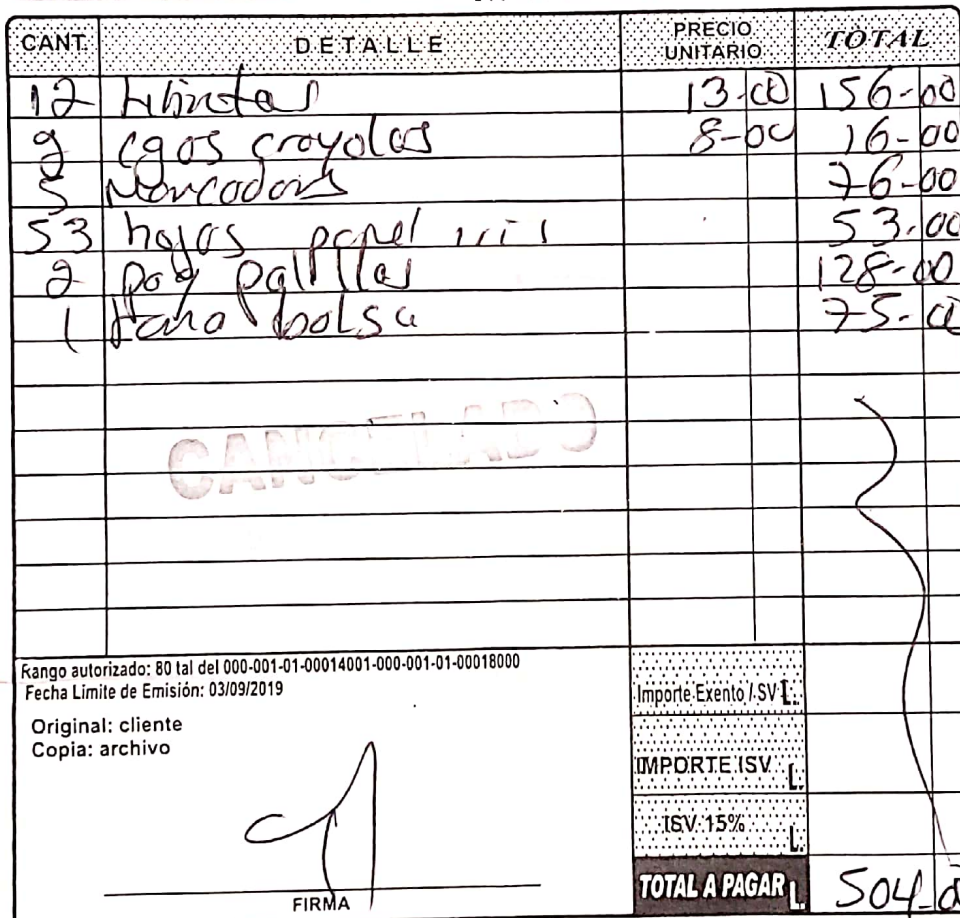 CANT. DETALLE PRECIO UNITARIO TOTAL
12 Libretas 13-00 156-00
2 cajas crayolas 8-00 16-00
5 Marcadors 76-00
53 hojas papel iris 53.00
2 paq palillas 128-00
1 bolsa 75-00
CANCELADO
Rango autorizado: 80 tal del 000-001-01-00014001-000-001-01-00018000
Fecha Limite de Emisión: 03/09/2019
Original: cliente
Copia: archivo
Importe Exento I.SV L.
IMPORTE ISV L.
ISV 15% L.
TOTAL A PAGAR L. 504-00
FIRMA